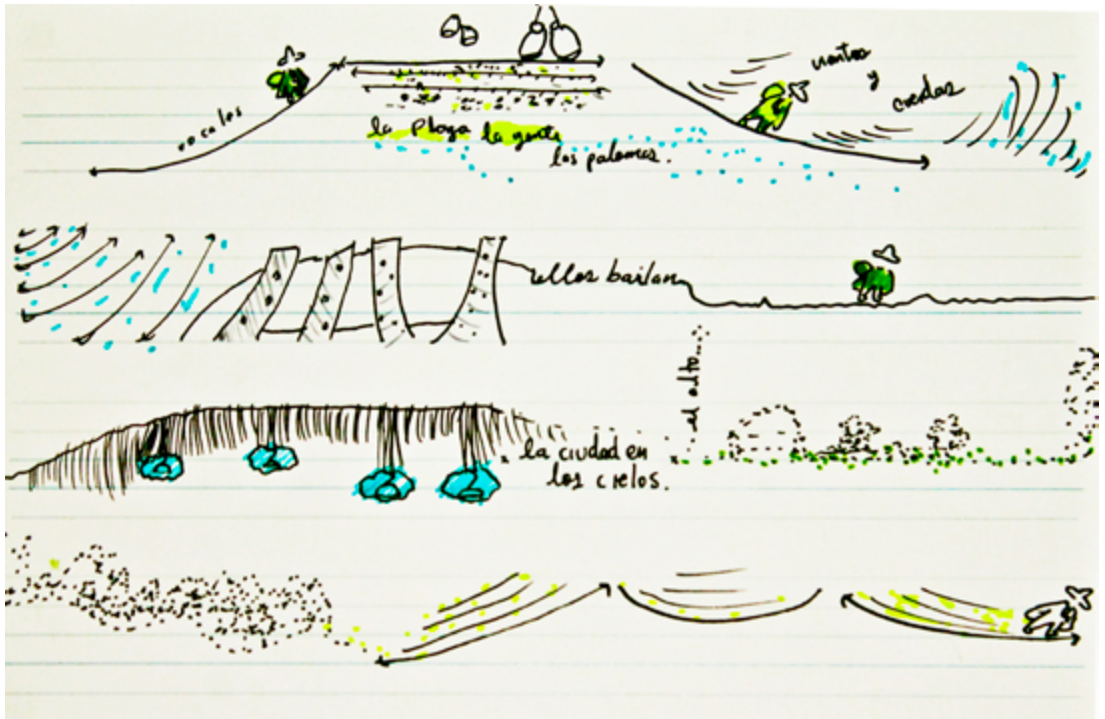 vocales
la Playa la gente
las palomas.
vientos
y
cuerdas
ellos bailan
el alto...
la ciudad en
los cielos.